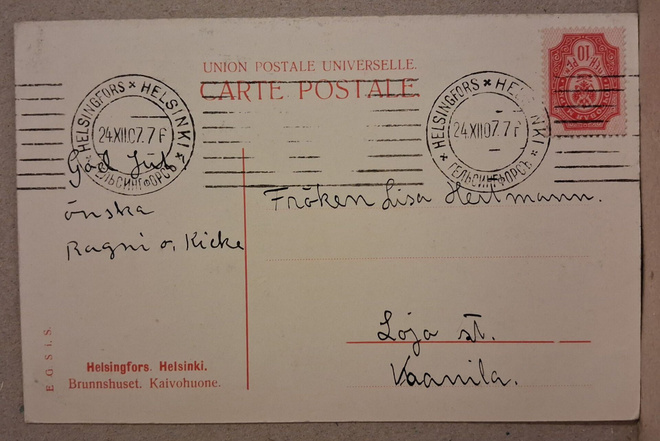 UNION POSTALE UNIVERSELLE.
CARTE POSTALE
HELSINGFORS * HELSINKI *
24.XII.07. 7 F
ГЕЛЬСИНГФОРСЪ
HELSINGFORS * HELSINKI *
24.XII.07. 7 F
ГЕЛЬСИНГФОРСЪ
10
God Jul
önska
Ragni o. Kicke
Fröken Lisa Hertmann.
Loja st.
Vaanila.
E. G. S. i. S.
Helsingfors. Helsinki.
Brunnshuset. Kaivohuone.